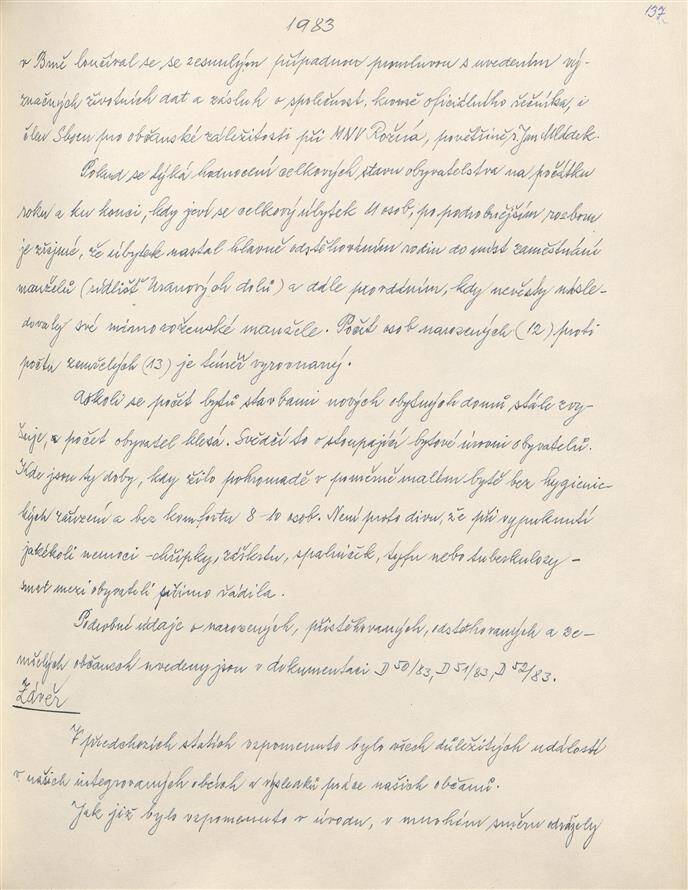 1983
137
v Brně loučíval se se zesnulým případnou promluvou s uvedením vý-
značných životních dat a zásluh o společnost, kromě oficiálního řečníka, i
člen Sboru pro občanské záležitosti při MNV Rožná, povětšině s. Jan Mládek.
Pokud se týká hodnocení celkových stavu obyvatelstva na počátku
roku a ku konci, kdy jeví se celkový úbytek 41 osob, po podrobnějším rozboru
je zřejmé, že úbytek nastal hlavně odstěhováním rodin do míst zaměstnání
manželů (sídlišť Uranových dolů) a dále provdáním, kdy nevěsty násle-
dovaly své mimoroženské manžele. Počet osob narozených (12) proti
počtu zemřelých (13) je téměř vyrovnaný.
Ačkoli se počet bytů stavbami nových obytných domů stále zvy-
šuje, počet obyvatel klesá. Svědčí to o stoupající bytové úrovni obyvatelů.
Kde jsou ty doby, kdy žilo pohromadě v poměrně malém bytě bez hygienic-
kých zařízení a bez komfortu 8-10 osob. Není proto divu, že při vypuknutí
jakékoli nemoci - chřipky, záškrtu, spalniček, tyfu nebo tuberkulosy -
smrt mezi obyvateli přímo řádila.
Podrobné údaje o narozených, přistěhovaných, odstěhovaných a ze-
mřelých občanech uvedeny jsou v dokumentaci D 50/83, D 51/83, D 52/83.
Závěr
V předchozích statích vzpomenuto bylo všech důležitých událostí
v našich integrovaných obcích a výsledků práce našich občanů.
Jak již bylo vzpomenuto v úvodu, v mnohém směru odrážely